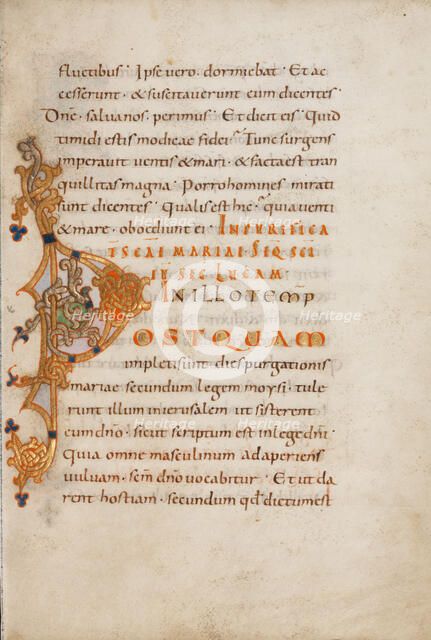 fluctibus · Ipse vero · dormiebat · Et ac
cesserunt · & suscitaverunt eum dicentes
Dñe · salvanos · perimus · Et dicit eis · Quid
timidi estis modicae fidei · Tunc surgens
imperavit ventis & mari · & facta est tran
quillitas magna · Porro homines mirati
sunt dicentes · Qualis est hic · quia venti
& mare · oboediunt ei · IN PURIFICA
SCAE MARIAE · SEQ SCI
EU SEC LUCAM ·
IN ILLO TEMP
POSTQUAM
impleti sunt dies purgationis
mariae secundum legem moysi · tule
runt illum in ierusalem ut sisterent
eum dño · sicut scriptum est in lege dñi
Quia omne masculinum adaperiens
vulvam · scm dño vocabitur · Et ut da
rent hostiam · secundum qd dictum est
Heritage
Heritage
Heritage
Heritage
Heritage
Heritage
Images